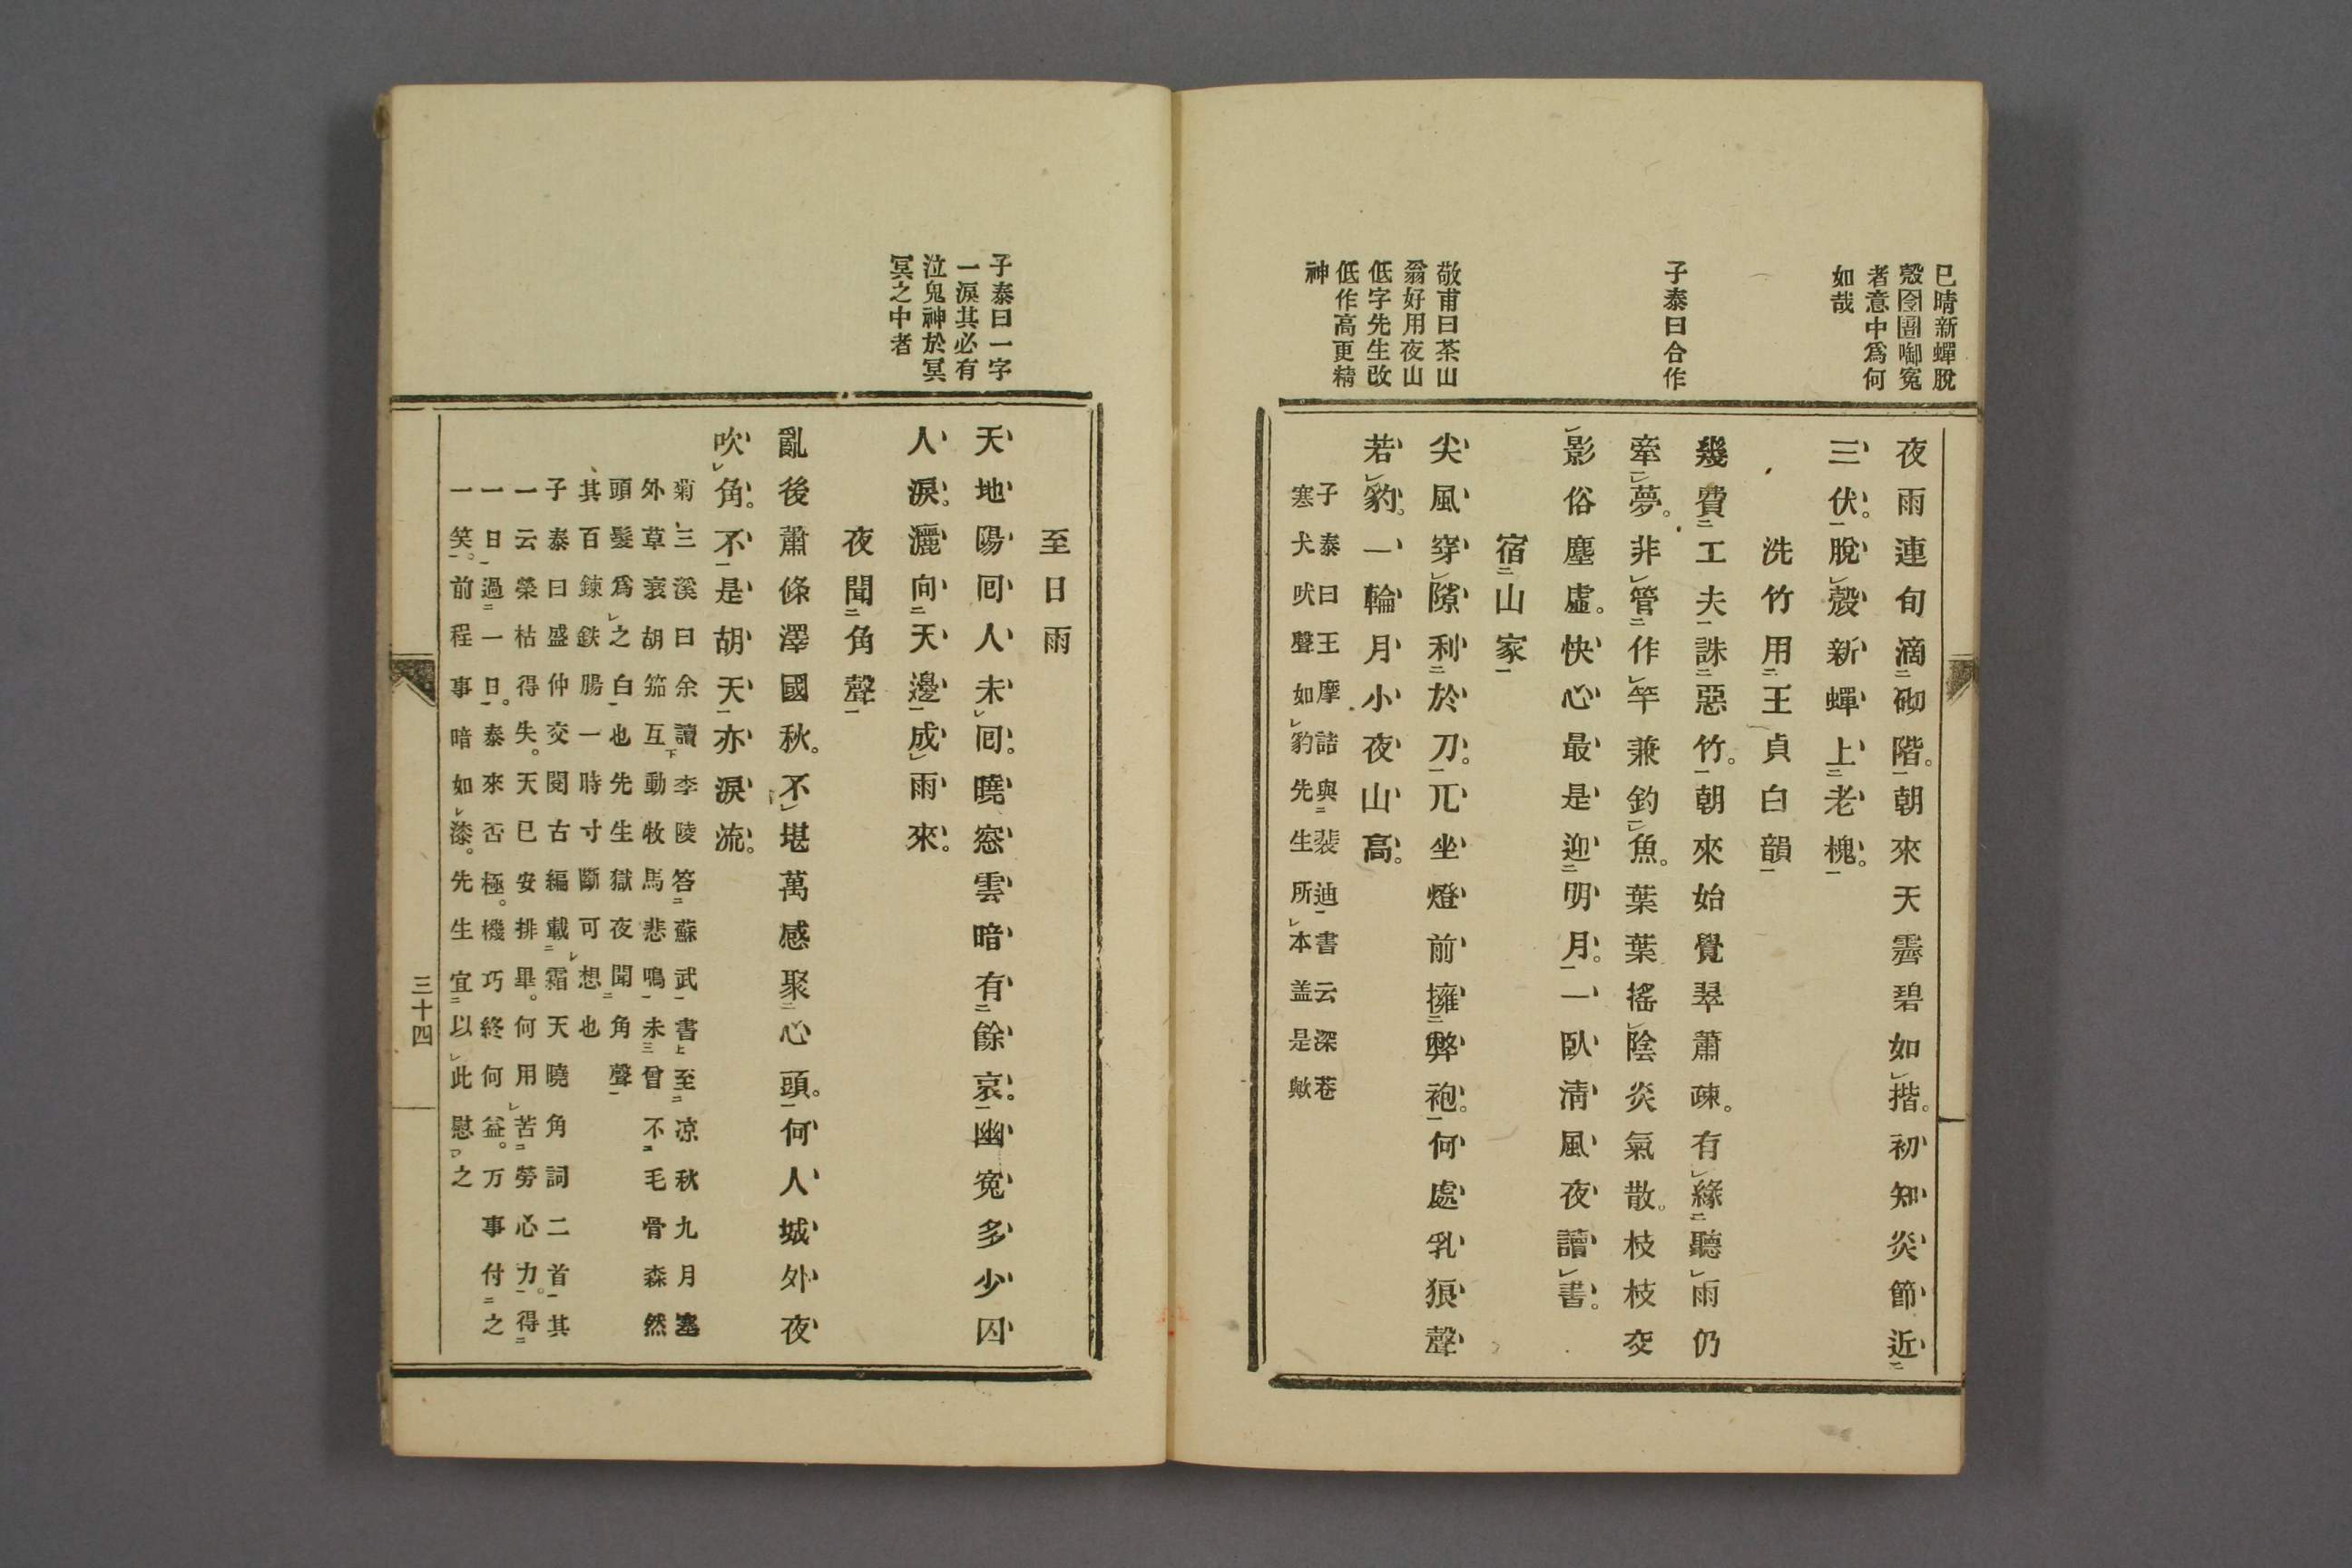 已晴新蟬脫
殼囹圄啣寃
者意中爲何
如哉
子泰曰合作
敬甫曰茶山
翁好用夜山
低字先生改
低作高更精
神
夜雨連旬滴砌階。朝來天霽碧如揩。初知炎節近
三伏。脫殼新蟬上老槐。
洗竹用王貞白韻
幾費工夫誅惡竹。朝來始覺翠蕭疎。有緣聽雨仍
牽夢。非管作竿兼釣魚。葉葉搖陰炎氣散。枝枝交
影俗塵虛。快心最是迎明月。一臥淸風夜讀書。
宿山家
尖風穿隙利於刀。兀坐燈前擁弊袍。何處乳狼聲
若豹。一輪月小夜山高。
子泰曰王摩詰與裴迪書云深巷
寒犬吠聲如豹先生所本盖是歟
子泰曰一字
一淚其必有
泣鬼神於冥
冥之中者
至日雨
天地陽囘人未囘。曉窓雲暗有餘哀。幽寃多少囚
人淚。灑向天邊成雨來。
夜聞角聲
亂後蕭條澤國秋。不堪萬感聚心頭。何人城外夜
吹角。不是胡天亦淚流。
菊三溪曰余讀李陵答蘇武書至凉秋九月塞
外草衰胡笳互動牧馬悲鳴未曾不毛骨森然
頭髮爲之白也先生獄夜聞角聲
其百鍊鉄腸一時寸斷可想也
子泰曰盛仲交閱古編載霜天曉角詞二首其
一云榮枯得失。天已安排畢。何用苦勞心力。得
一日過一日。泰來否極。機巧終何益。万事付之
一笑。前程事暗如漆。先生宜以此慰之
三十四